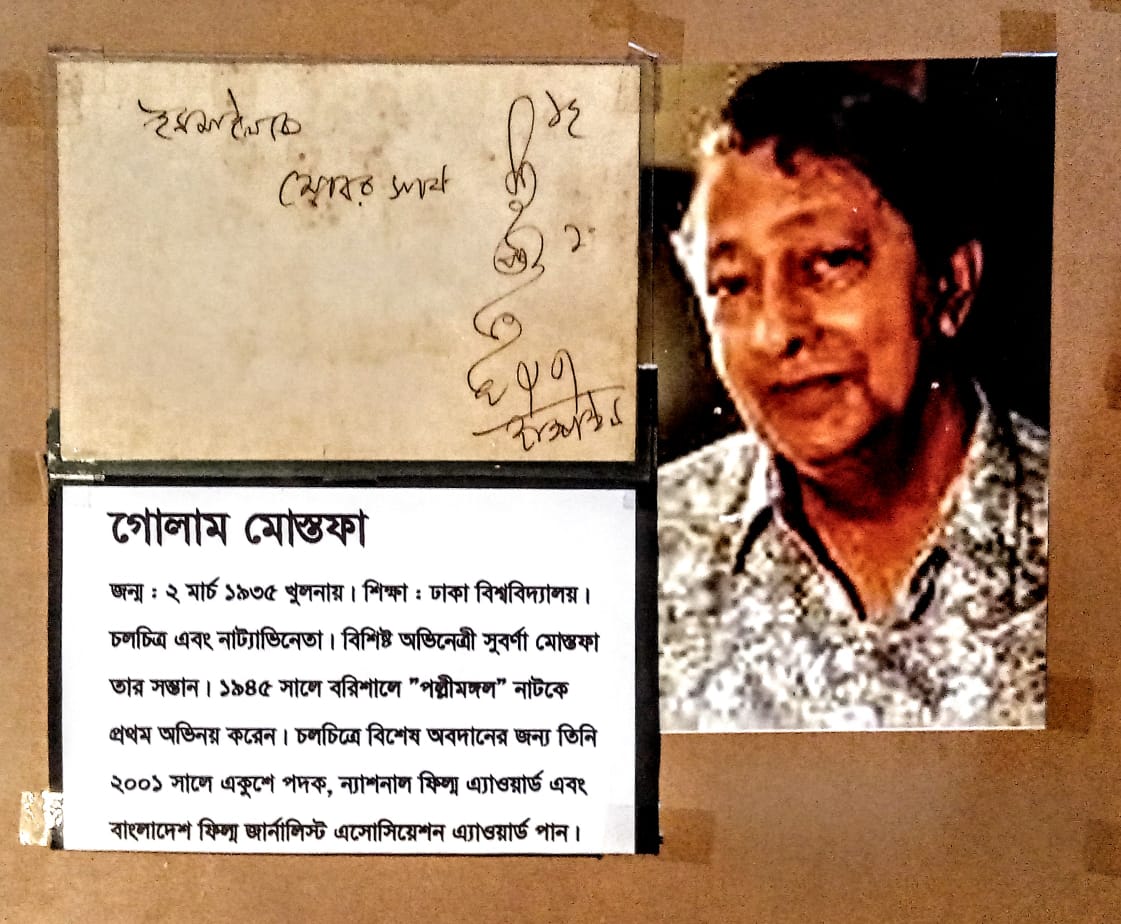 ইসমাইলকে
গোলাম মোস্তফা
জন্ম : ২ মার্চ ১৯৩৫ খুলনায়। শিক্ষা : ঢাকা বিশ্ববিদ্যালয়।
চলচিত্র এবং নাট্যাভিনেতা। বিশিষ্ট অভিনেত্রী সুবর্ণা মোস্তফা
তার সন্তান। ১৯৪৫ সালে বরিশালে "পল্লীমঙ্গল" নাটকে
প্রথম অভিনয় করেন। চলচিত্রে বিশেষ অবদানের জন্য তিনি
২০০১ সালে একুশে পদক, ন্যাশনাল ফিল্ম এ্যাওয়ার্ড এবং
বাংলাদেশ ফিল্ম জার্নালিস্ট এসোসিয়েশন এ্যাওয়ার্ড পান।